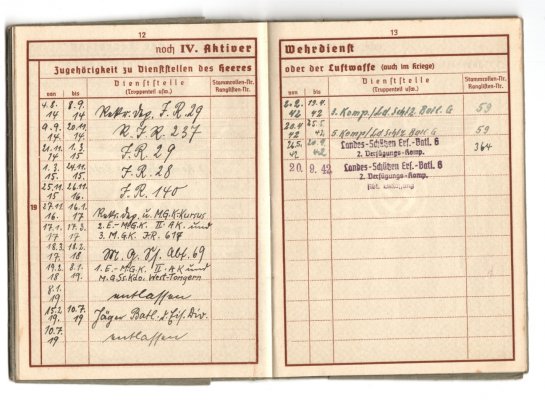 12
noch IV. Aktiver
Zugehörigkeit zu Dienststellen des Heeres
von bis Dienststelle (Truppenteil usw.) Stammrollen-Nr. Ranglisten-Nr.
4.8. 14 8.9. 14 Rekr. Dep. J.R. 29
9.9. 14 20.11. 14 R.J.R. 237
21.11. 14 1.3. 15 J.R. 29
1.3. 15 24.11. 15 J.R. 28
25.11. 15 26.11. 16 J.R. 140
19
27.11. 16 16.1. 17 Rekr. Dep. u. M.G.K. Kursus
17.1. 17 17.3. 17 2. E.-M.G.K. II AK. und
3. M.G.K. J.R. 614
18.3. 17 18.2. 18 M.G. Sch. Abt. 69
19.2. 18 8.1. 19 1. E.-M.G.K. II. AK und
M.G.Ss.Kdo. West-Tangern
8.1. 19 entlassen
15.2. 19. 10.7. 19 Jäger Batl. Eis. Div.
10.7. 19 entlassen
13
Wehrdienst
oder der Luftwaffe (auch im Kriege)
von bis Dienststelle (Truppenteil usw.) Stammrollen-Nr. Ranglisten-Nr.
20.2. 42 19.4. 42 3. Komp./Ld. Schtz. Batl. G 59
20.4. 42 25.5. 42 5. Komp./Ld. Schtz. Batl. G 59
26.5. 42 42 Landes-Schützen Ers.-Batl. 6 364
2. Verfügungs-Komp.
20. 9. 42 Landes-Schützen Ers.-Batl. 6
2. Verfügungs-Komp.